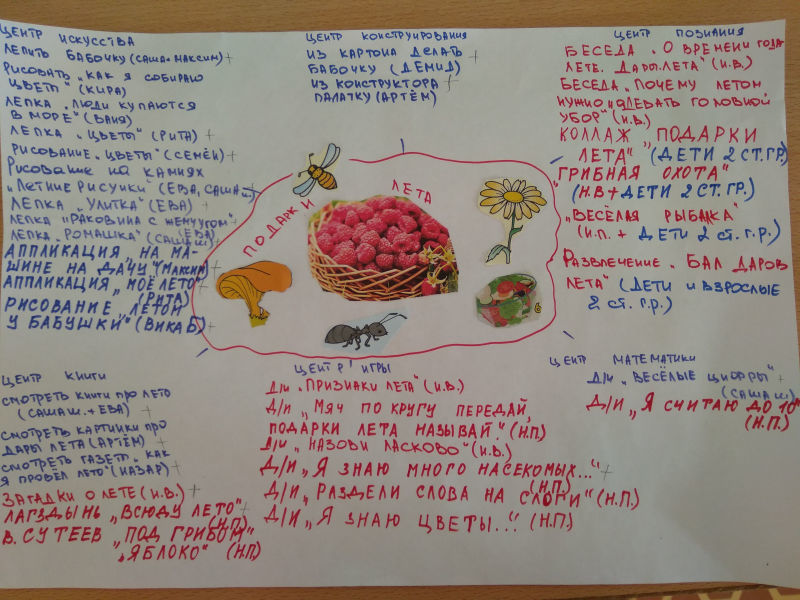 ЦЕНТР ИСКУССТВА
ЛЕПИТЬ БАБОЧКУ (САША + МАКСИМ) +
РИСОВАТЬ „КАК Я СОБИРАЮ
ЦВЕТЫ" (КИРА)
ЛЕПКА „ЛЮДИ КУПАЮТСЯ
В МОРЕ" (ВАНЯ) +
ЛЕПКА „ЦВЕТЫ" (РИТА) +
РИСОВАНИЕ „ЦВЕТЫ" (СЕМЁН) +
РИСОВАНИЕ НА КАМНЯХ
„ЛЕТНИЕ РИСУНКИ" (ЕВА, САША Ш) +
ЛЕПКА „УЛИТКА" (ЕВА) +
ЛЕПКА „РАКОВИНА С ЖЕМЧУГОМ" +
(ЕВА)
ЛЕПКА „РОМАШКА" (САША Ш) +
АППЛИКАЦИЯ „НА МА-
ШИНЕ НА ДАЧУ" (МАКСИМ)
АППЛИКАЦИЯ „МОЁ ЛЕТО"
(РИТА)
РИСОВАНИЕ „ЛЕТОМ
У БАБУШКИ" (ВИКА Б) +
ЦЕНТР КОНСТРУИРОВАНИЯ
ИЗ КАРТОНА ДЕЛАТЬ +
БАБОЧКУ (ДЕМИД)
ИЗ КОНСТРУКТОРА +
ПАЛАТКУ (АРТЁМ)
ЦЕНТР ПОЗНАНИЯ
БЕСЕДА „О ВРЕМЕНИ ГОДА
ЛЕТЕ. ДАРЫ ЛЕТА" (И.В.)
БЕСЕДА „ПОЧЕМУ ЛЕТОМ
НУЖНО ОДЕВАТЬ ГОЛОВНОЙ
УБОР" (И.В.)
КОЛЛАЖ „ПОДАРКИ
ЛЕТА" (ДЕТИ 2 СТ. ГР.)
„ГРИБНАЯ ОХОТА"
(Н.В + ДЕТИ 2 СТ. ГР.)
„ВЕСЁЛАЯ РЫБАЛКА"
(И.П. + ДЕТИ 2 СТ. Г.Р.)
РАЗВЛЕЧЕНИЕ „БАЛ ДАРОВ
ЛЕТА" (ДЕТИ И ВЗРОСЛЫЕ
2 СТ. Г.Р.)
ПОДАРКИ
ЛЕТА
6
ЦЕНТР КНИГИ
СМОТРЕТЬ КНИГИ ПРО ЛЕТО
(САША Ш. + ЕВА) +
СМОТРЕТЬ КАРТИНКИ ПРО
ДАРЫ ЛЕТА (АРТЁМ) +
СМОТРЕТЬ ГАЗЕТ. „КАК
Я ПРОВЁЛ ЛЕТО" (НАЗАР) +
ЗАГАДКИ О ЛЕТЕ (И.В.) +
ЛАГЗДЫНЬ „ВСЮДУ ЛЕТО" +
(Н.П.)
В. СУТЕЕВ „ПОД ГРИБОМ"
„ЯБЛОКО" (Н.П.)
ЦЕНТР ИГРЫ
Д/И „ПРИЗНАКИ ЛЕТА" (И.В.)
Д/И „МЯЧ ПО КРУГУ ПЕРЕДАЙ,
ПОДАРКИ ЛЕТА НАЗЫВАЙ." (Н.П.)
Д/И „НАЗОВИ ЛАСКОВО" (И.В.)
Д/И „Я ЗНАЮ МНОГО НАСЕКОМЫХ..." +
(Н.П.)
Д/И „РАЗДЕЛИ СЛОВА НА СЛОГИ" (Н.П.)
Д/И „Я ЗНАЮ ЦВЕТЫ..." (Н.П.)
ЦЕНТР МАТЕМАТИКИ
Д/И „ВЕСЁЛЫЕ ЦИФРЫ" +
(САША Ш)
Д/И „Я СЧИТАЮ ДО 10"
(Н.П.)